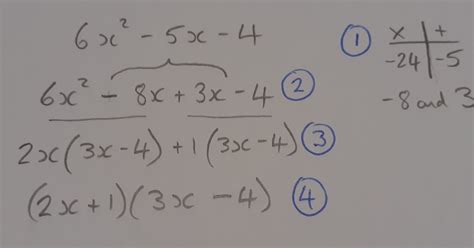 6x² - 5x - 4
6x² - 8x + 3x - 4 ②
2x(3x-4) + 1(3x-4) ③
(2x+1)(3x-4) ④
① x | +
-24 | -5
-8 and 3